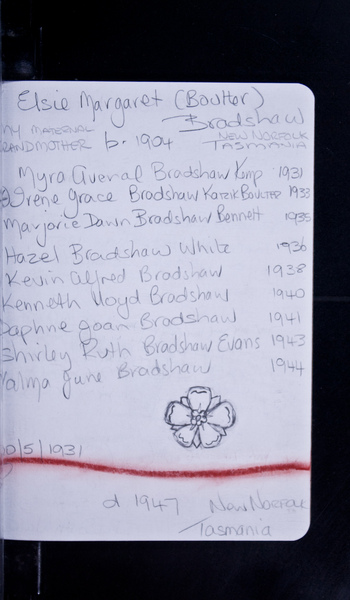 Elsie Margaret (Boulter)
Bradshaw
MY MATERNAL
GRANDMOTHER b. 1904 NEW NORFOLK
TASMANIA
Myra Averal Bradshaw Kemp 1931
Irene Grace Bradshaw KATZIK BOULTER 1933
Marjorie Dawn Bradshaw Bennett 1935
Hazel Bradshaw White 1936
Kevin Alfred Bradshaw 1938
Kenneth Lloyd Bradshaw 1940
Daphne Joan Bradshaw 1941
Shirley Ruth Bradshaw Evans 1943
Valma June Bradshaw 1944
10/5/1931
d 1947 NEW NORFOLK
Tasmania